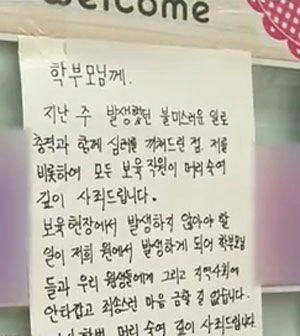 welcome
학부모님께.
지난 주 발생했던 불미스러운 일로
충격과 함께 심려를 끼쳐드린 점. 저를
비롯하여 모든 보육 직원이 머리숙여
깊이 사죄드립니다.
보육현장에서 발생하지 않아야 할
일이 저희 원에서 발생하게 되어 학부모님
들과 우리 원생들에게 그리고 지역사회에
안타깝고 죄송스런 마음 금할 길 없습니다.
머리 숙여 깊이 사죄드립니다